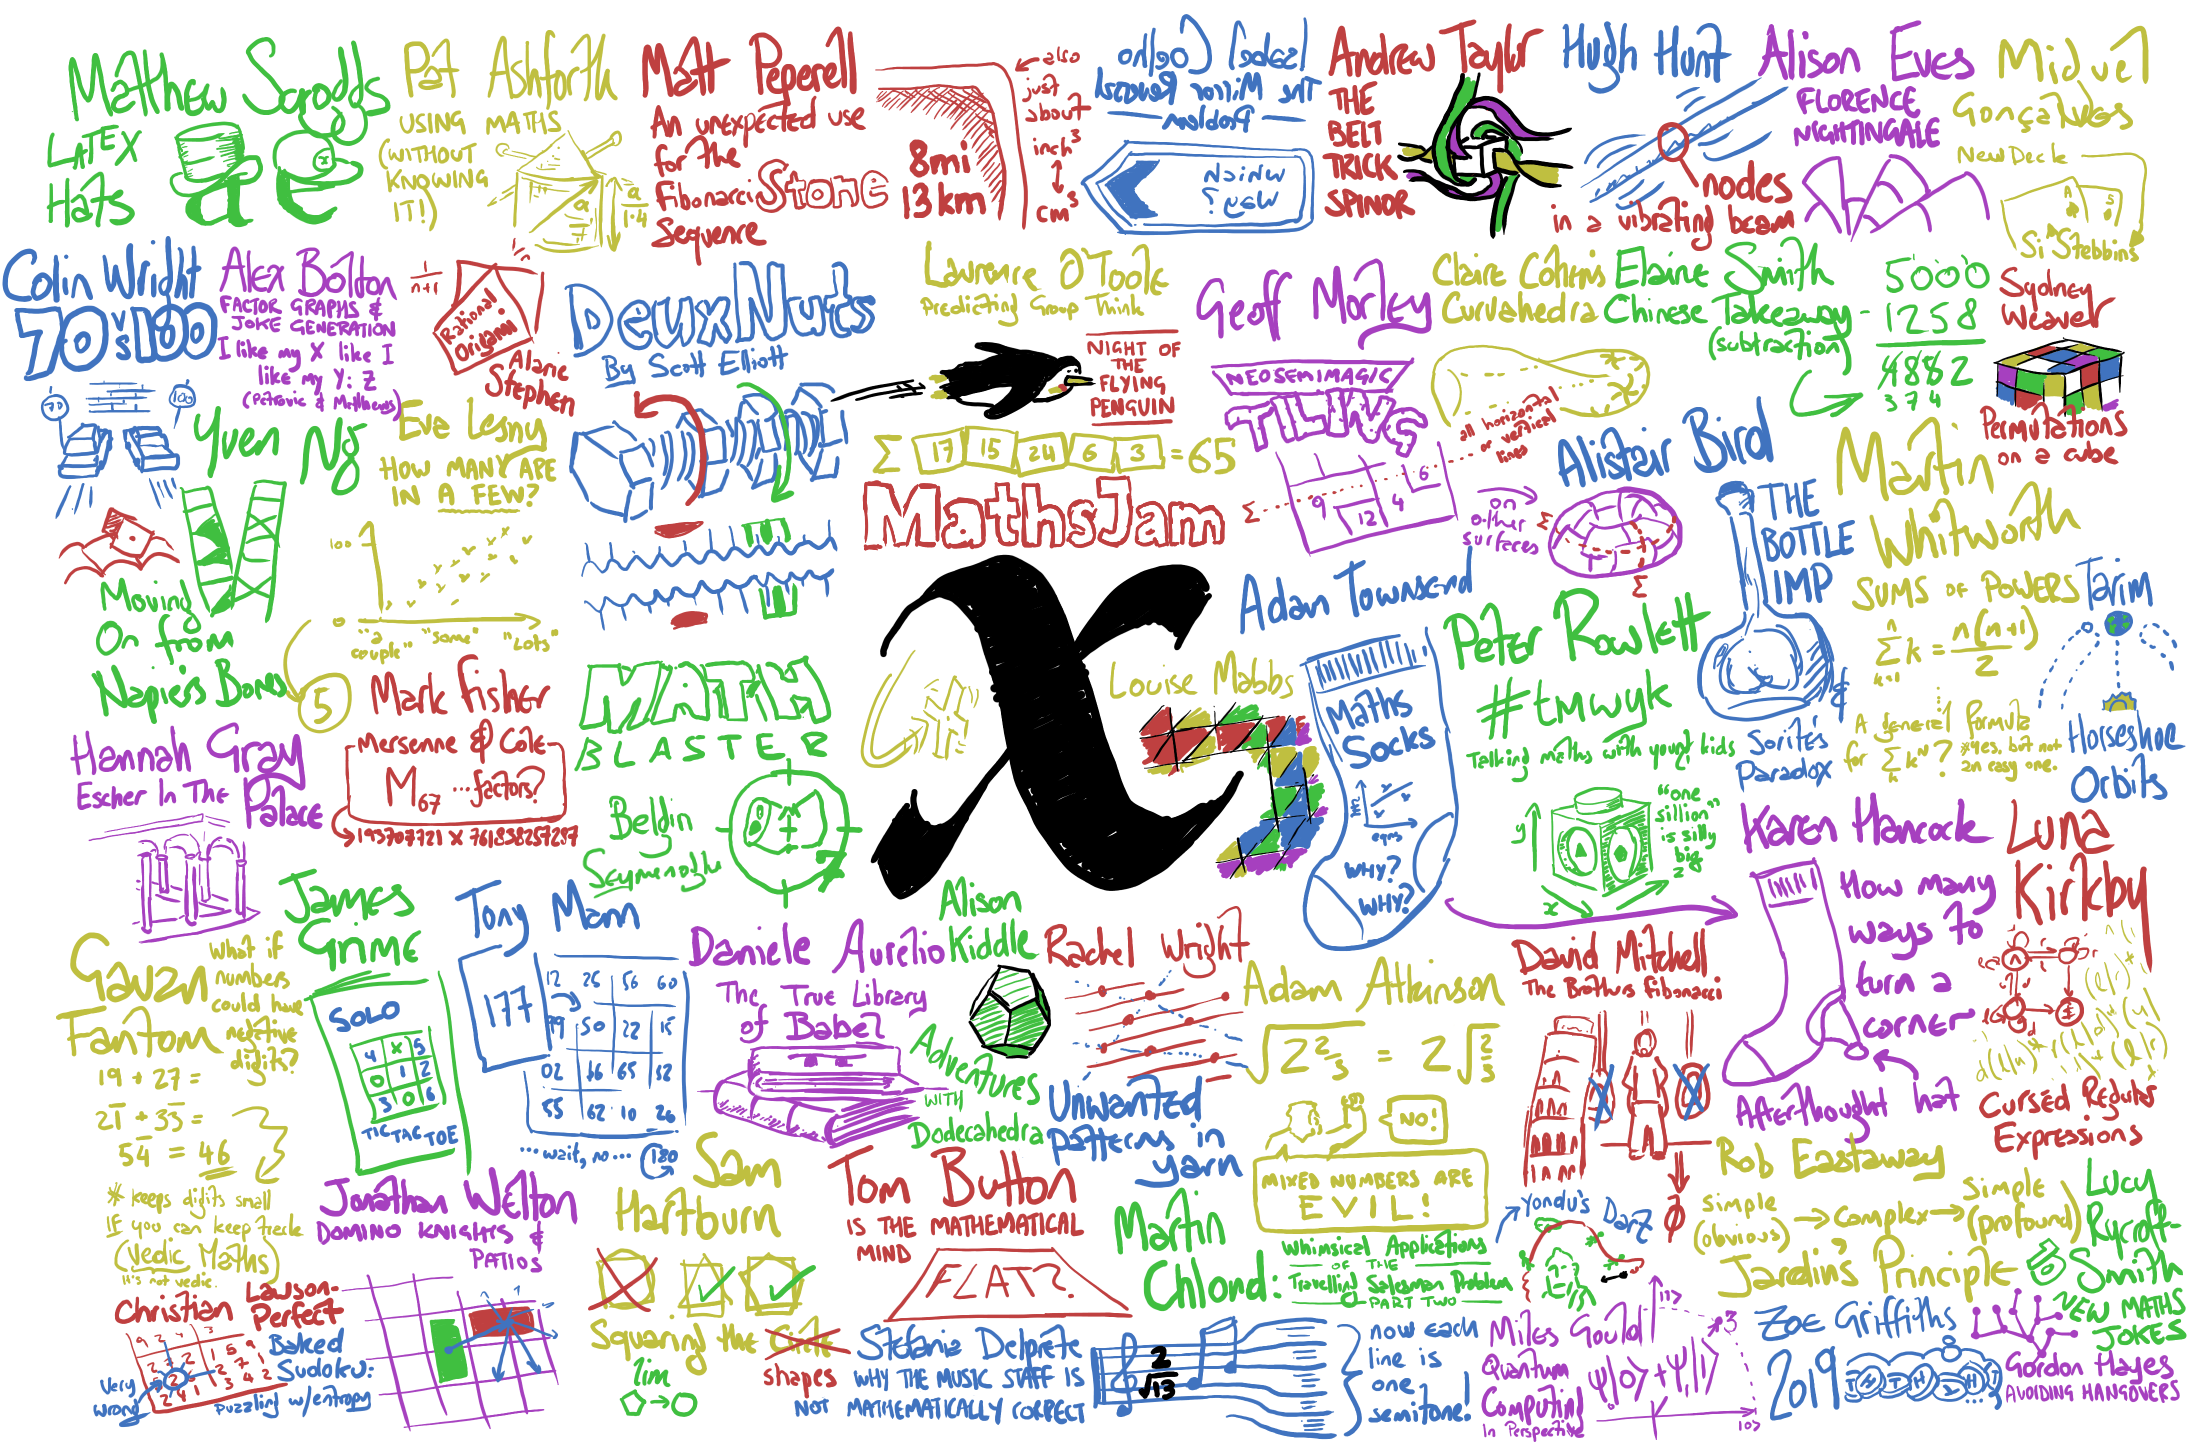 Matthew Scroggs
LATEX
Hats
Pat Ashforth
USING MATHS
(WITHOUT
KNOWING
IT!)
a
a
1.4
Matt Peperell
An unexpected use
for the
Fibonacci
Sequence
Stone
8mi
13km
also
just
about
inch³
cm³
Isabel Coelho
The Mirror Reversal
Problem
Which
Way?
Andrew Taylor
THE
BELT
TRICK
SPINOR
Hugh Hunt
nodes
in a vibrating beam
Alison Eves
FLORENCE
NIGHTINGALE
Miguel
Gonçalves
New Deck
A
5
Si Stebbins
Colin Wright
70 vs 100
70
100
Alex Bolton
FACTOR GRAPHS &
JOKE GENERATION
I like my X like I
like my Y: Z
(Petrovic & Matthews)
1
n+1
Rational
Origami
Alane
Stephen
DeuxNuts
By Scott Elliott
Laurence O'Toole
Predicting Group Think
NIGHT OF
THE
FLYING
PENGUIN
Geoff Morley
NEOSEMIMAGIC
TILINGS
all horizontal
or vertical
lines
Σ
9
12
4
6
on
other
surfaces
Σ
Σ
Claire Cohen's
Curvahedra
Elaine Smith
Chinese Takeaway
(subtraction)
5000
- 1258
4882
374
Sydney
Weaver
Permutations
on a cube
Yuen Ng
Moving
On from
Napier's Bones
Eve Lesny
HOW MANY ARE
IN A FEW?
100
0
"a couple"
"some"
"Lots"
5
Σ 17 15 24 6 3 = 65
MathsJam
Alistair Bird
THE
BOTTLE
IMP
&
Sorites
Paradox
Martin
Whitworth
SUMS OF POWERS
n
Σ k = n(n+1)
k=1 2
A general formula
for Σ kᴺ? *yes, but not
k an easy one.
Tarim
Horseshoe
Orbits
Adam Townsend
Maths
Socks
eqns
WHY?
WHY?
Peter Rowlett
#tmwyk
Talking maths with your kids
"one
sillion"
is silly
big
y
x
z
Louise Mabbs
Mark Fisher
Mersenne & Cole
M67 ...factors?
193707721 x 761838257287
MATH
BLASTER
Belgin
Seymenoglu
7
Hannah Gray
Escher In The
Palace
Karen Hancock
How many
ways to
turn a
corner
Afterthought hat
Luna
Kirkby
Cursed Regular
Expressions
James
Grime
SOLO
4 X 5
0 1 2
3 0 6
TIC TAC TOE
Tony Mann
177
12 26 56 60
79 50 22 15
02 16 65 52
55 62 10 26
...wait, no... 180
Daniele Aurelio
The True Library
of Babel
Alison
Kiddle
Adventures
WITH
Dodecahedra
Rachel Wright
Unwanted
patterns in
yarn
Adam Atkinson
√2 2/3 = 2√2/3
NO!
MIXED NUMBERS ARE
EVIL!
David Mitchell
The Brothers Fibonacci
φ
Gavan
Fantom
What if
numbers
could have
negative
digits?
19 + 27 =
21̄ + 33̄ =
54̄ = 46
* keeps digits small
IF you can keep track
(Vedic Maths)
It's not vedic.
Jonathan Welton
DOMINO KNIGHTS &
PATIOS
Sam
Hartburn
Squaring the Circle
shapes
lim
Tom Button
IS THE MATHEMATICAL
MIND
FLAT?
Martin
Chlond:
Whimsical Applications
OF THE
Travelling Salesman Problem
PART TWO
Yondu's Dart
Rob Eastaway
Simple
(obvious)
→ Complex →
Simple
(profound)
Jardin's Principle
Lucy
Rycroft-
Smith
NEW MATHS
JOKES
Christian Lawson-
Perfect
Baked
Sudoku:
puzzling w/entropy
Very
wrong
Stefania Delprete
WHY THE MUSIC STAFF IS
NOT MATHEMATICALLY CORRECT
2
√13
now each
line is
one
semitone!
Miles Gould
Quantum
Computing
In Perspective
ψ|0⟩+ψ|1⟩
|1⟩
|0⟩
Zoe Griffiths
2019
Gordon Hayes
AVOIDING HANGOVERS